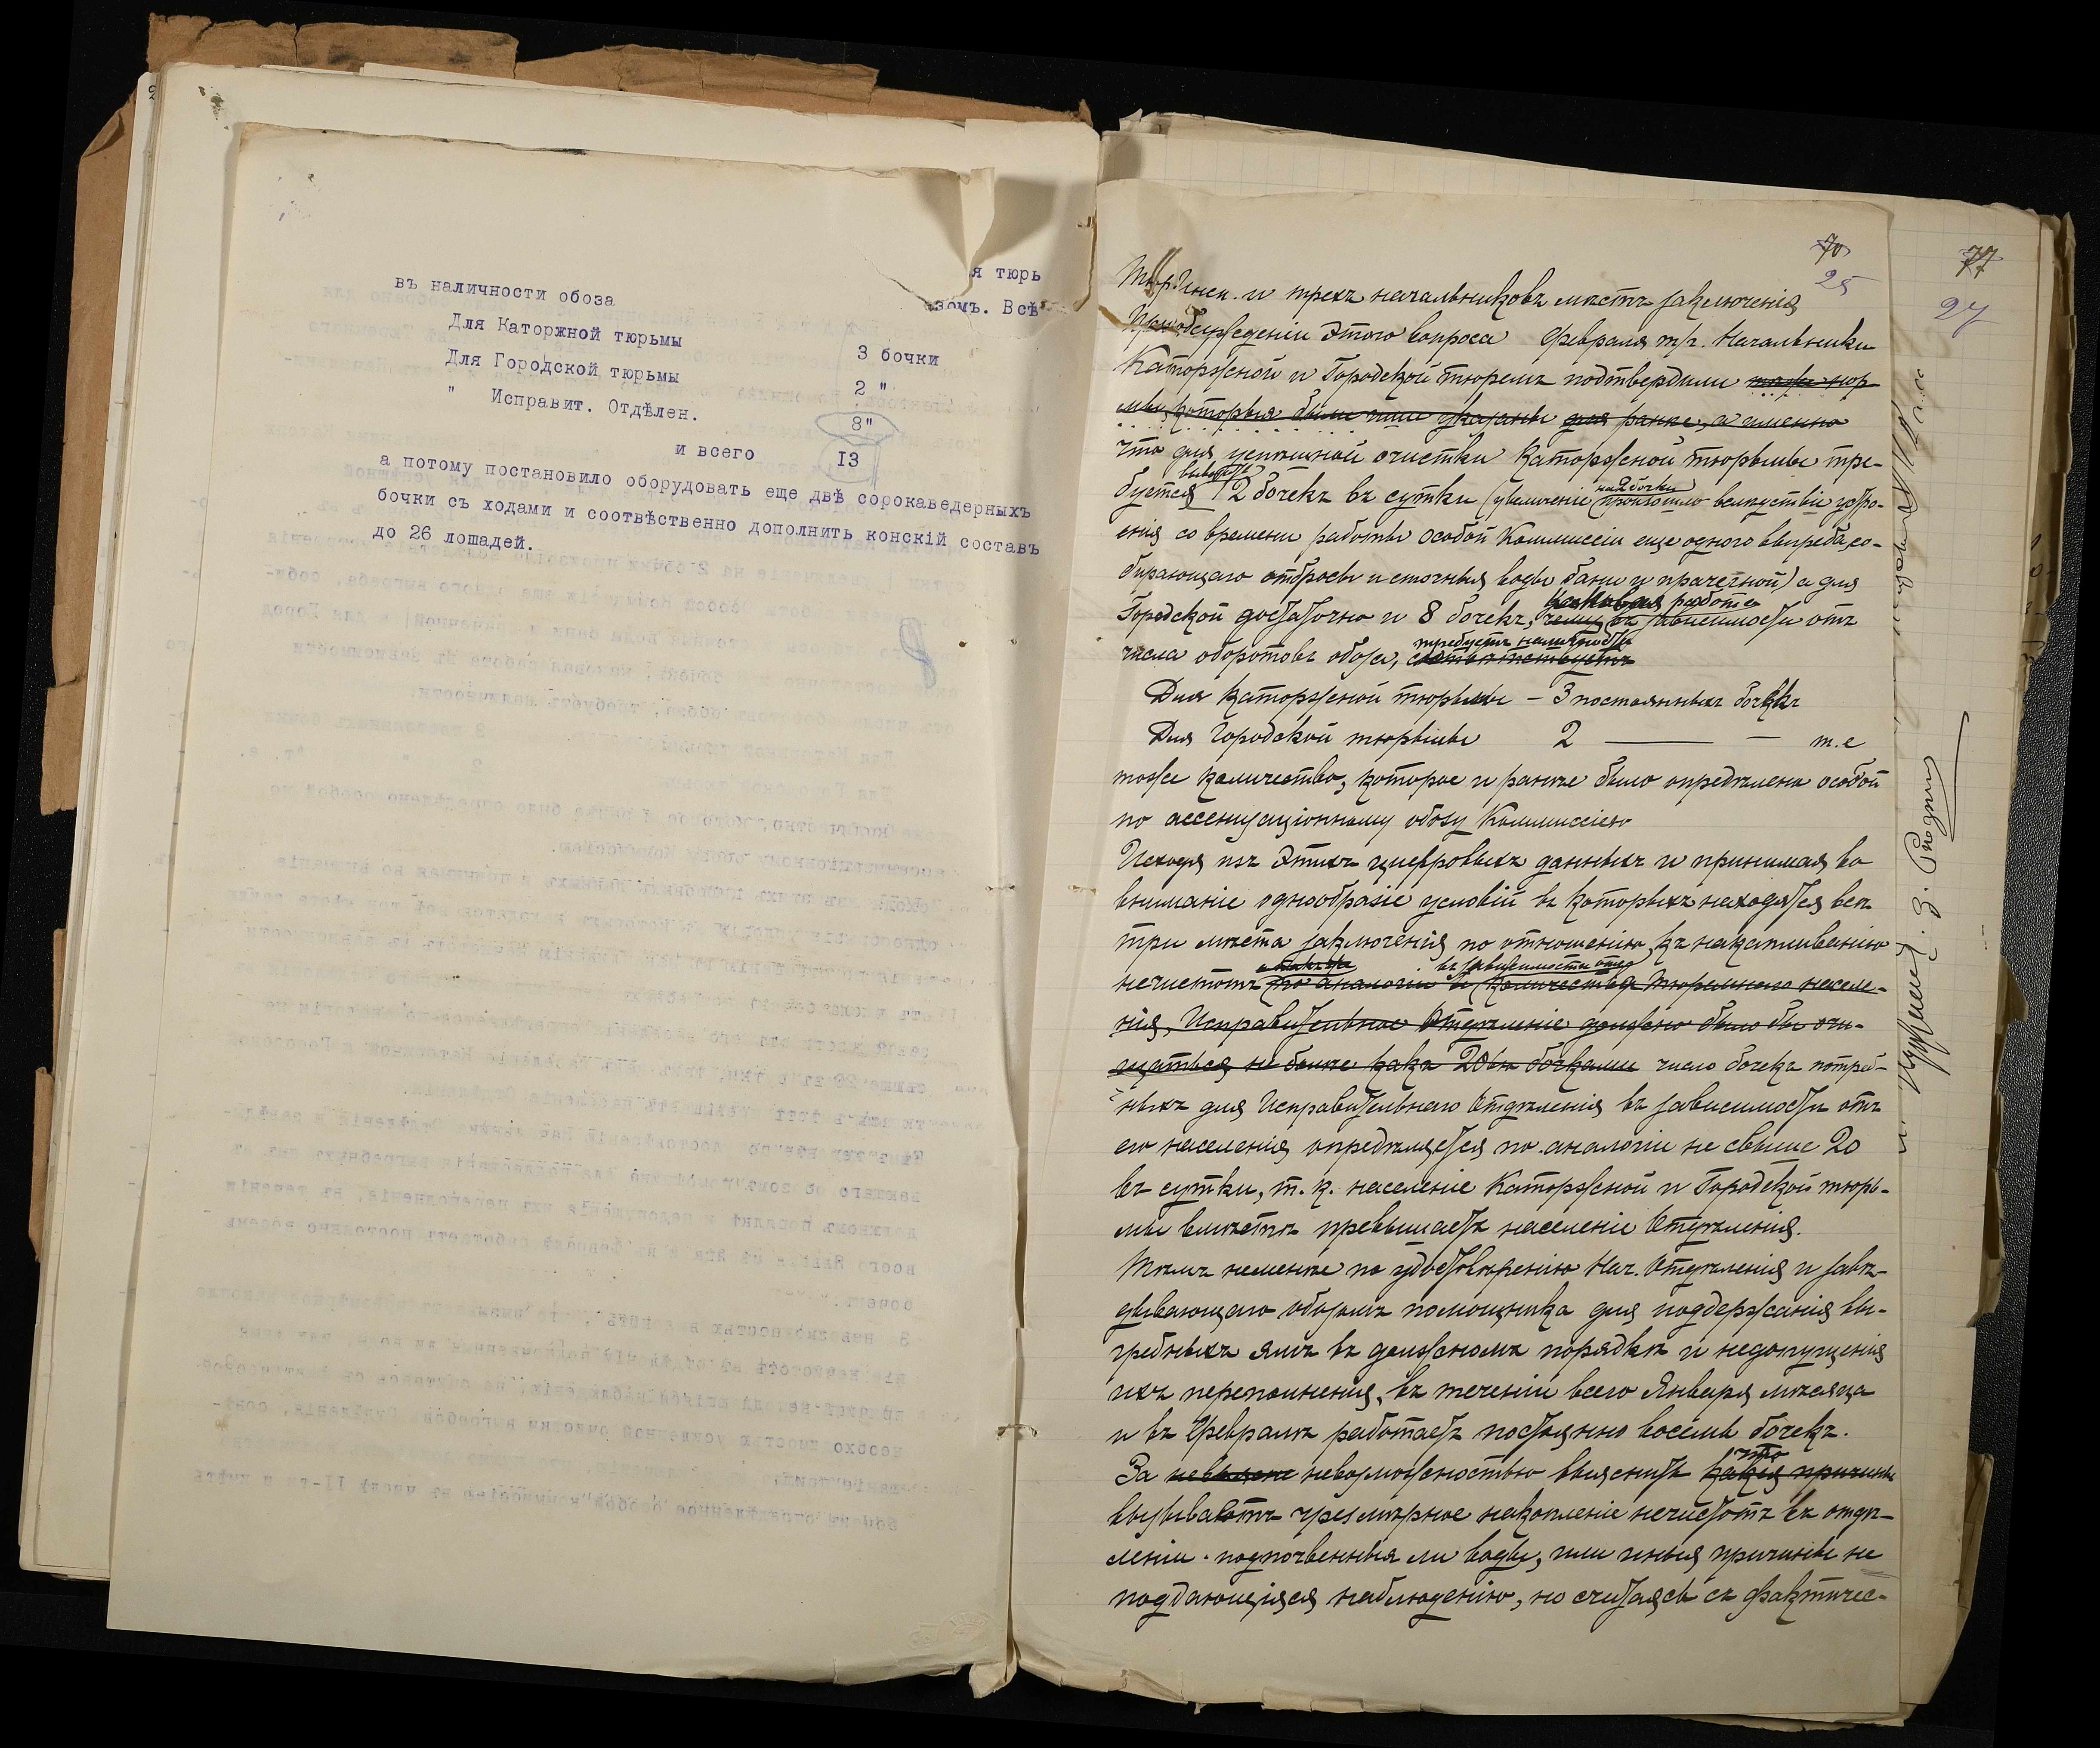 я тюрь
зомъ. Всѣ
въ наличности обоза
Для Каторжной тюрьмы 3 бочки
Для Городской тюрьмы 2 "
" Исправит. Отдѣлен. 8"
и всего 13
а потому постановило оборудовать еще двѣ сорокаведерныхъ
бочки съ ходами и соотвѣственно дополнить конскій составъ
до 26 лошадей.
70
25
77
27
Тюр. Инсп. и трехъ начальниковъ мѣстъ заключенія
При обсужденіи этого вопроса Февраля т/г. Начальники
Каторжной и Городской тюремъ подтвердили тѣже нор-
мы, которыя были ими указаны для ранѣе, а именно
что для успѣшной очистки Каторжной тюрьмы тре-
вывозъ на 2 бочки
буется 12 бочекъ въ сутки (увеличеніе произошло вслѣдствіе устро-
енія со времени работы особой Коммиссіи еще одного выгреба, со-
бирающаго отбросы и сточныя воды бани и прачечной) а для
каковая работа
Городской достаточно и 8 бочекъ, чему въ зависимости отъ
требуетъ наличности
числа оборотовъ обоза, соотвѣтствуетъ
Для Каторжной тюрьмы – 3 постоянныхъ бочки
Для Городской тюрьмы 2 — – т.е
тоже количество, которое и ранѣе было опредѣлено особой
по ассенизаціонному обозу Коммиссіею
Исходя изъ этихъ цифровыхъ данныхъ и принимая во
вниманіе однообразіе условій въ которыхъ находятся всѣ
три мѣста заключенія по отношенію къ накапливанію
а также въ зависимости отъ
нечистотъ по аналогіи и количества тюремнаго населе-
нія, Исправительное Отдѣленіе должно было бы очи-
щаться не болѣе какъ 20ью бочками число бочекъ потреб-
ныхъ для Исправительнаго Отдѣленія въ зависимости отъ
его населенія опредѣляется по аналогіи не свыше 20
въ сутки, т. к. населеніе Каторжной и Городской тюрь-
мы вмѣстѣ превышаетъ населеніе Отдѣленія.
Тѣмъ неменѣе по удостовѣренію Нач. Отдѣленія и завѣ-
дывающаго обозомъ помощника для поддержанія вы-
гребныхъ ямъ въ должномъ порядкѣ и недопущенія
ихъ переполненія, въ теченіи всего Января мѣсяца
и въ Февралѣ работаетъ постоянно восемь бочекъ.
что
За невозможностью выяснить какія причины
вызываютъ чрезмѣрное накопленіе нечистотъ въ отдѣ-
леніи - подпочвенныя ли воды, или иныя причины не
поддающіяся наблюденію, но считаясь съ фактичес-